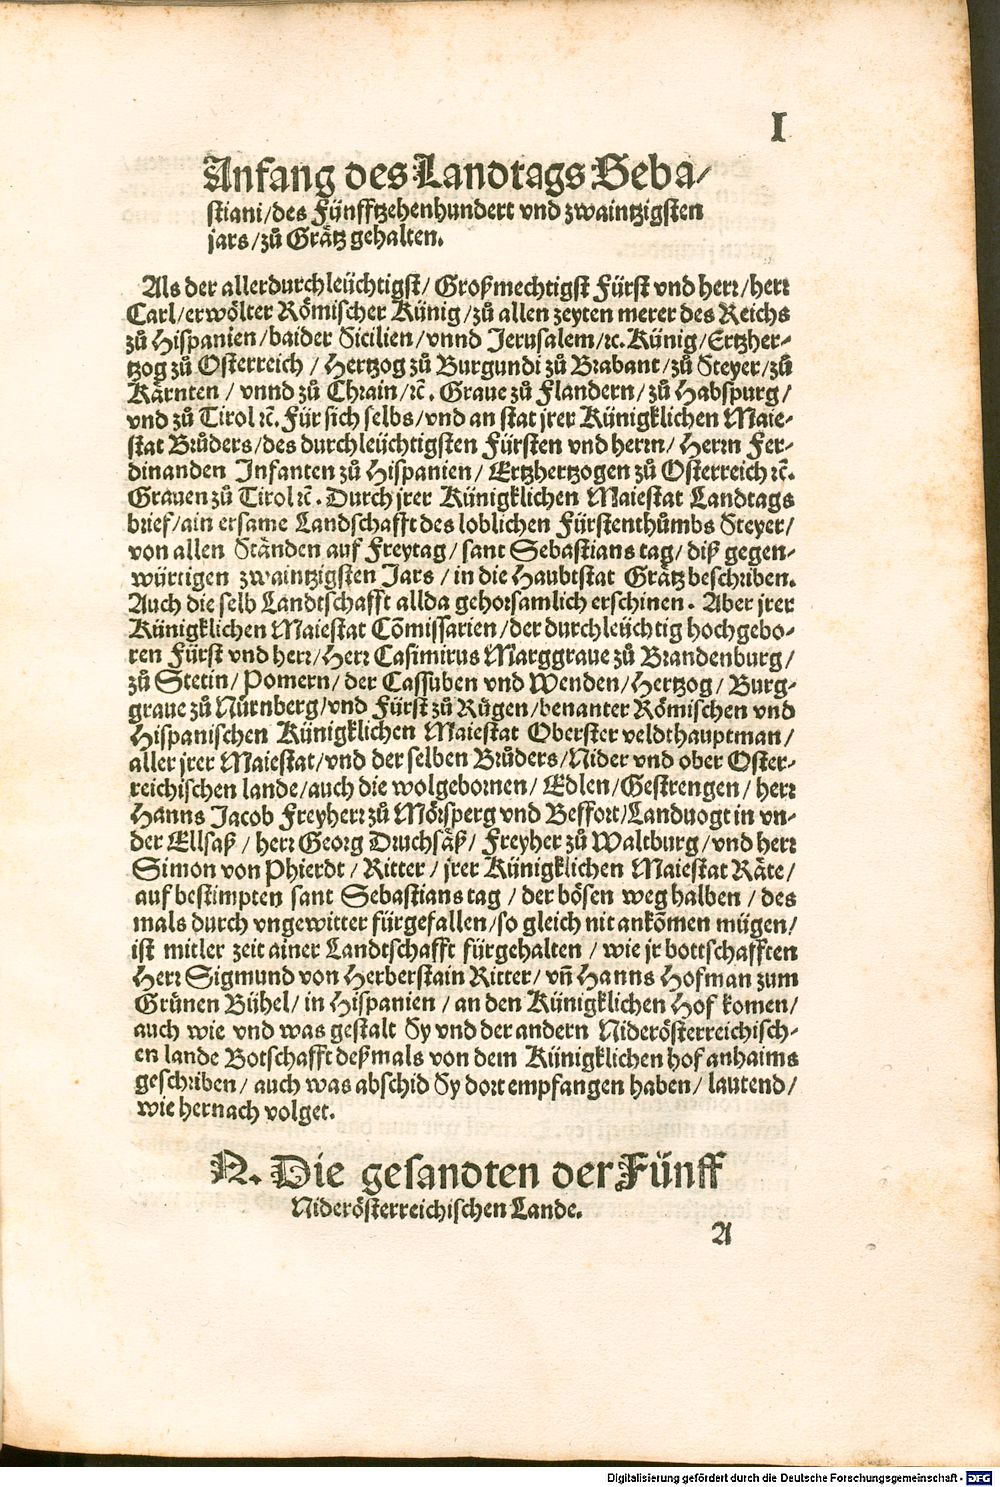 I
Anfang des Landtags Seba/
stiani/des Fünfftzehenhundert vnd zwaintzigsten
jars/zů Grätz gehalten.
Als der allerdurchleüchtigst/ Großmechtigst Fürst vnd herr/herr
Carl/erwölter Römischer Künig/zů allen zeyten merer des Reichs
zů Hispanien/baider Sicilien/vnnd Jerusalem/ꝛc. Künig/Ertzher-
tzog zů Osterreich / Hertzog zů Burgundi zů Brabant/zů Steyer/zů
Kärnten / vnnd zů Chrain/ꝛc̄. Graue zů Flandern/zů Habspurg/
vnd zů Tirol ꝛc̄. Für sich selbs/vnd an stat jrer Künigklichen Maie-
stat Brůders/des durchleüchtigsten Fürsten vnd herrn/Herrn Fer-
dinanden Infanten zů Hispanien/ Ertzhertzogen zů Osterreich ꝛc̄.
Grauen zů Tirol ꝛc̄. Durch jrer Künigklichen Maiestat Landtags
brief/ain ersame Landschafft des loblichen Fürstenthůmbs Steyer/
von allen Ständen auf Freytag/sant Sebastians tag/diß gegen-
würtigen zwaintzigsten Jars / in die Haubtstat Grätz beschriben.
Auch die selb Landtschafft allda gehorsamlich erschinen. Aber jrer
Künigklichen Maiestat Cōmissarien/der durchleüchtig hochgebo-
ren Fürst vnd herr/Herr Casimirus Marggraue zů Brandenburg/
zů Stetin/Pomern/der Cassuben vnd Wenden/Hertzog/Burg-
graue zů Nürnberg/vnd Fürst zů Rügen/benanter Römischen vnd
Hispanischen Künigklichen Maiestat Oberster veldthauptman/
aller jrer Maiestat/vnd der selben Brůders/Nider vnd ober Oster-
reichischen lande/auch die wolgebornen/Edlen/Gestrengen/herr
Hanns Jacob Freyherr zů Mörsperg vnd Beffort/Landuogt in vn-
der Ellsaß / herr Georg Druchsäß/ Freyher zů Waltburg/vnd herr
Simon von Phierdt / Ritter / jrer Künigklichen Maiestat Räte/
auf bestimpten sant Sebastians tag / der bösen weg halben / des
mals durch vngewitter fürgefallen/so gleich nit ankōmen mügen/
ist mitler zeit ainer Landtschafft fürgehalten / wie jr bottschafften
Herr Sigmund von Herberstain Ritter/ vn̄ Hanns Hofman zum
Grünen Bühel/in Hispanien / an den Künigklichen Hof komen/
auch wie vnd was gestalt Sy vnd der andern Niderösterreichisch-
en lande Botschafft deßmals von dem Künigklichen hof anhaims
geschriben / auch was abschid Sy dort empfangen haben/ lautend/
wie hernach volget.
N. Die gesandten der Fünff
Niderösterreichischen Lande.
A
Digitalisierung gefördert durch die Deutsche Forschungsgemeinschaft - DFG